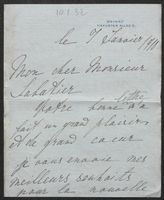 10.1.32
le 7 Janvier 1911
Mon cher Monsieur
Sabatier
Votre bonne lettre m'a
fait un grand plaisir
et de grand cœur
je vous envoie mes
meilleurs souhaits
pour la nouvelle